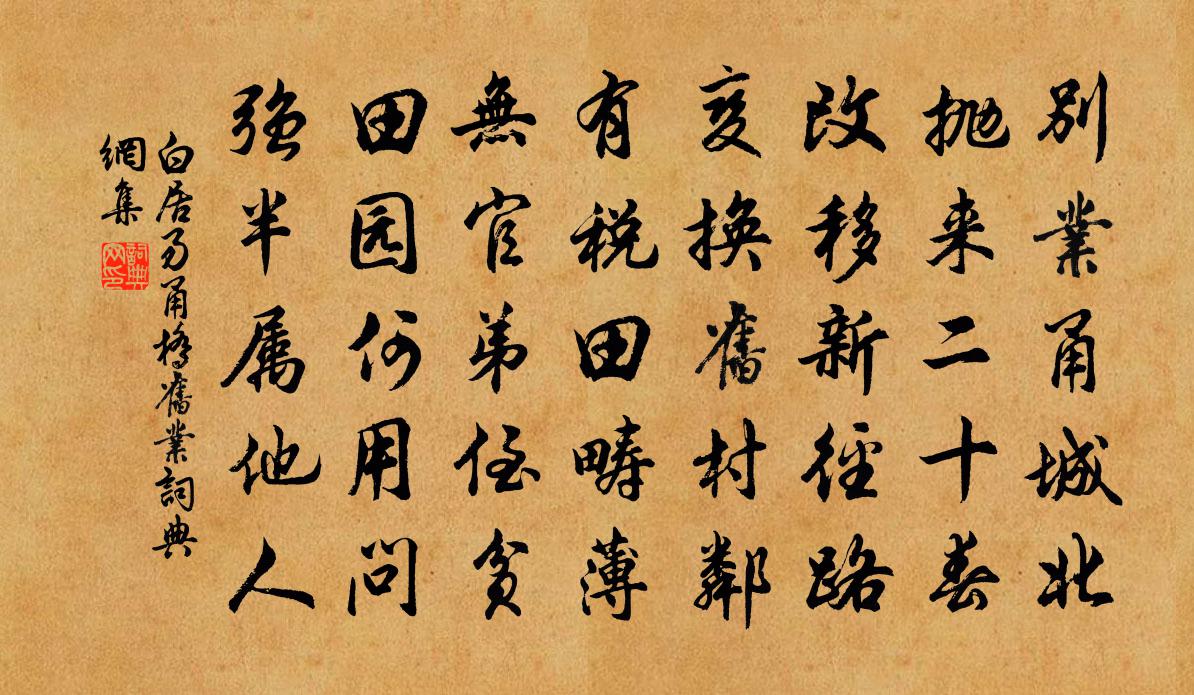 別業甬城北
抛来二十春
改移新徑路
变換舊村鄰
有税田疇薄
無官弟侄貧
田园何用問
强半属他人
白居易甬橋舊業詞典
網集
詞典
网印